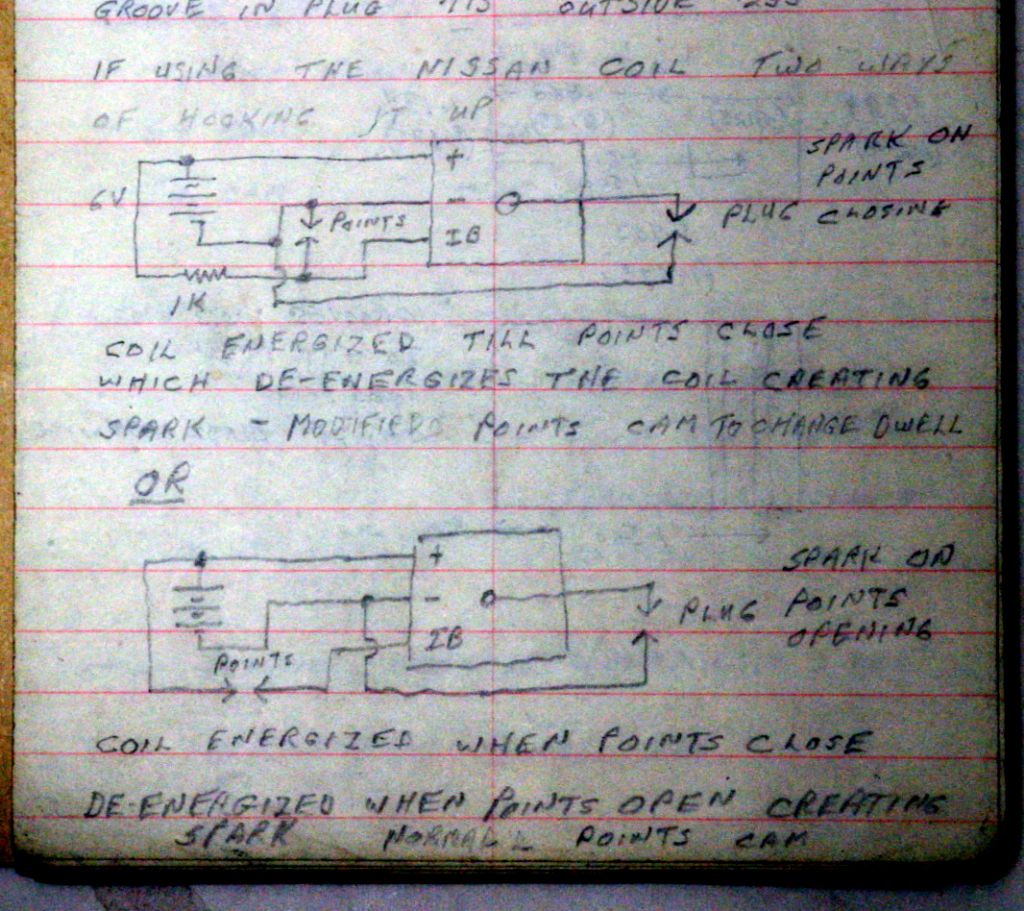 GROOVE IN PLUG OUTSIDE
IF USING THE NISSAN COIL TWO WAYS
OF HOOKING IT UP
SPARK ON
POINTS
CLOSING
6V
+
-
IB
POINTS
PLUG
1K
COIL ENERGIZED TILL POINTS CLOSE
WHICH DE-ENERGIZES THE COIL CREATING
SPARK - MODIFIED POINTS CAM TO CHANGE DWELL
OR
SPARK ON
POINTS
OPENING
+
-
IB
PLUG
POINTS
COIL ENERGIZED WHEN POINTS CLOSE
DE-ENERGIZED WHEN POINTS OPEN CREATING
SPARK NORMAL POINTS CAM